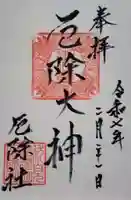 奉拝
厄除大神
令和七年
二月二十一日
厄除社